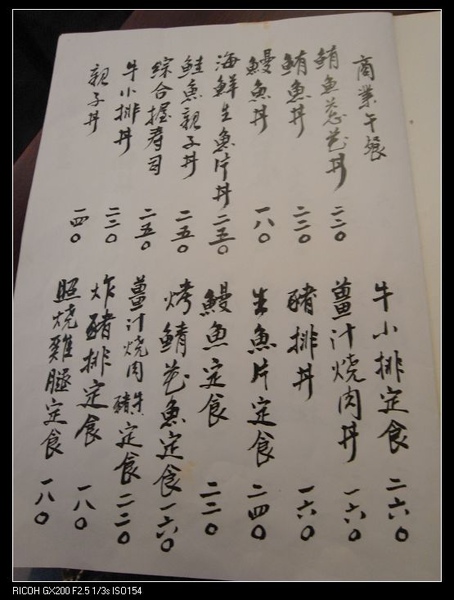 商業午餐
鮪魚葱花丼 二二〇
鮪魚丼 二二〇
鰻魚丼 一八〇
海鮮生魚片丼 二五〇
鮭魚親子丼 二五〇
綜合握壽司 二五〇
牛小排丼 二二〇
親子丼 一四〇
牛小排定食 二六〇
薑汁燒肉丼 一六〇
豬排丼 一六〇
生魚片定食 二四〇
鰻魚定食 二二〇
烤鯖花魚定食 一六〇
薑汁燒肉牛豬定食 二二〇
炸豬排定食 一八〇
照燒雞腿定食 一八〇
RICOH GX200 F2.5 1/3s ISO154